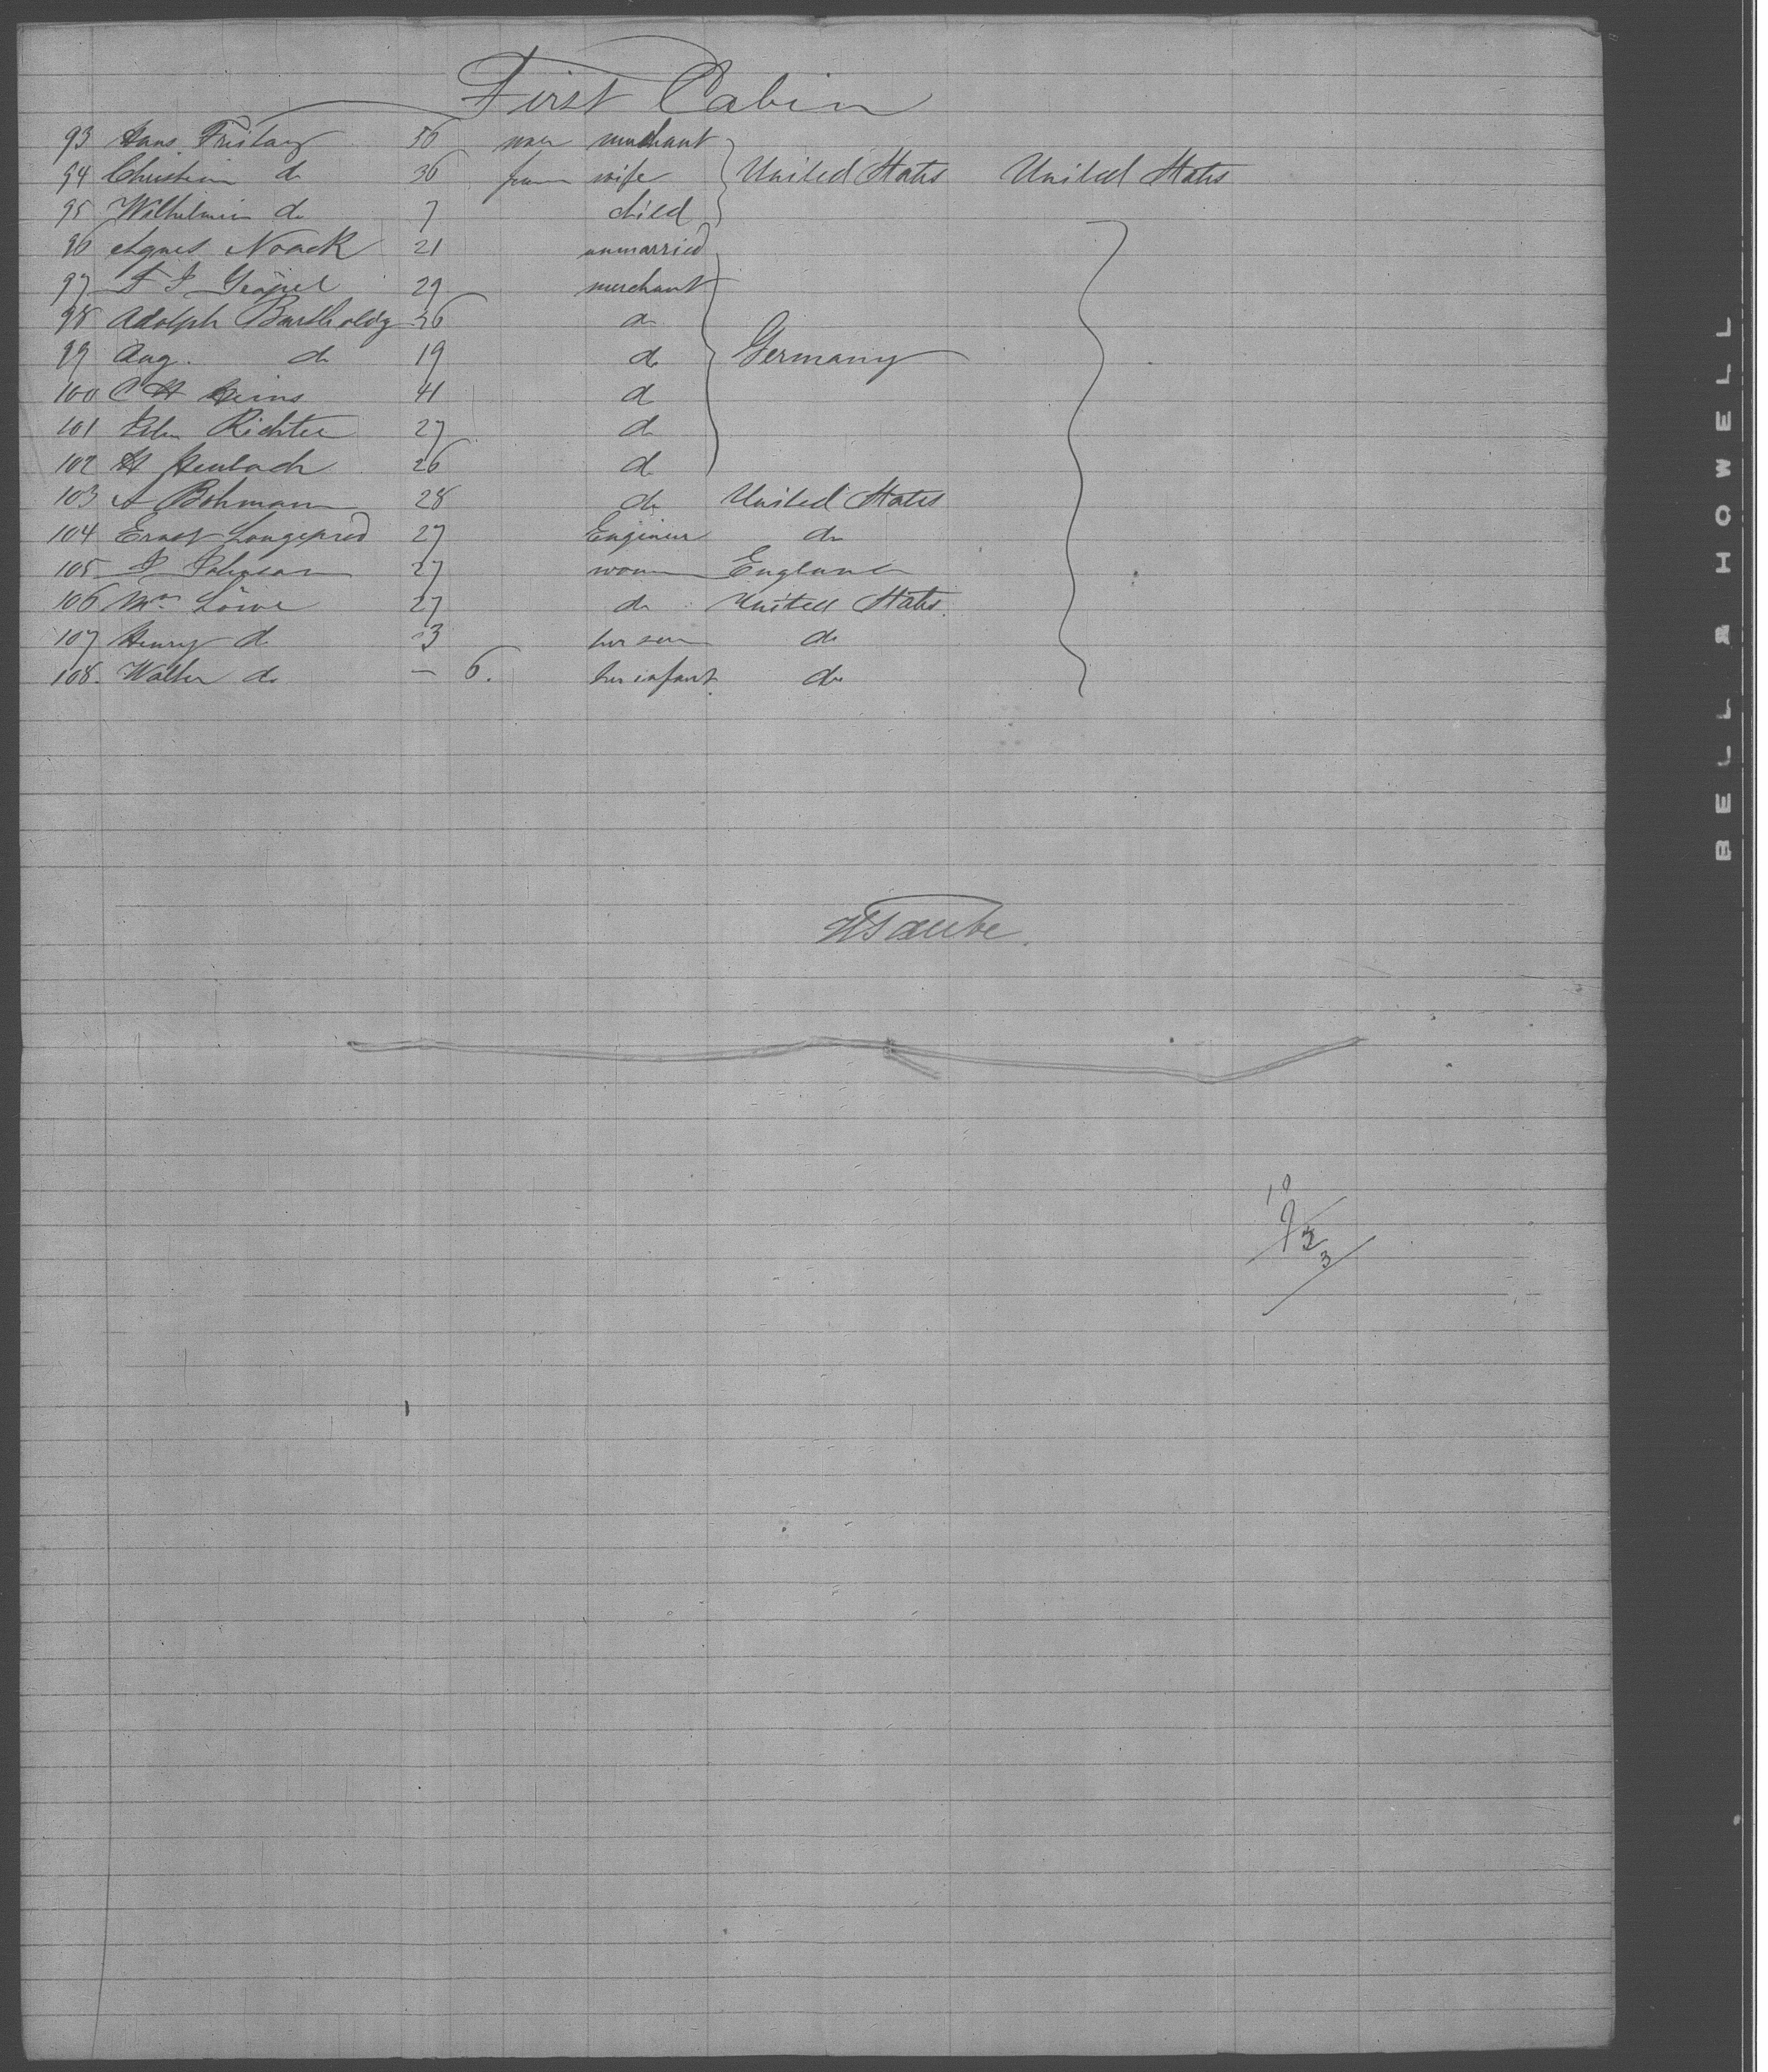 First Cabin
93 Hans Freitag 50 man merchant
94 Christian do 36 fem wife United States United States
95 Wilhelmin do 7 child
96 Agnes Noack 21 unmarried
97 29 merchant
98 Adolph Bartholdy 36 do
99 Aug. do 19 do Germany
100 C H Heins 41 do
101 Richter 27 do
102 H 26 do
103 A Bohmann 28 do United States
104 Ernst 27 Engineer do
105 27 woman England
106 Mrs Löwe 27 do United States
107 Henry do 3 her son do
108. Walter do — 6. her infant do
BELL & HOWELL